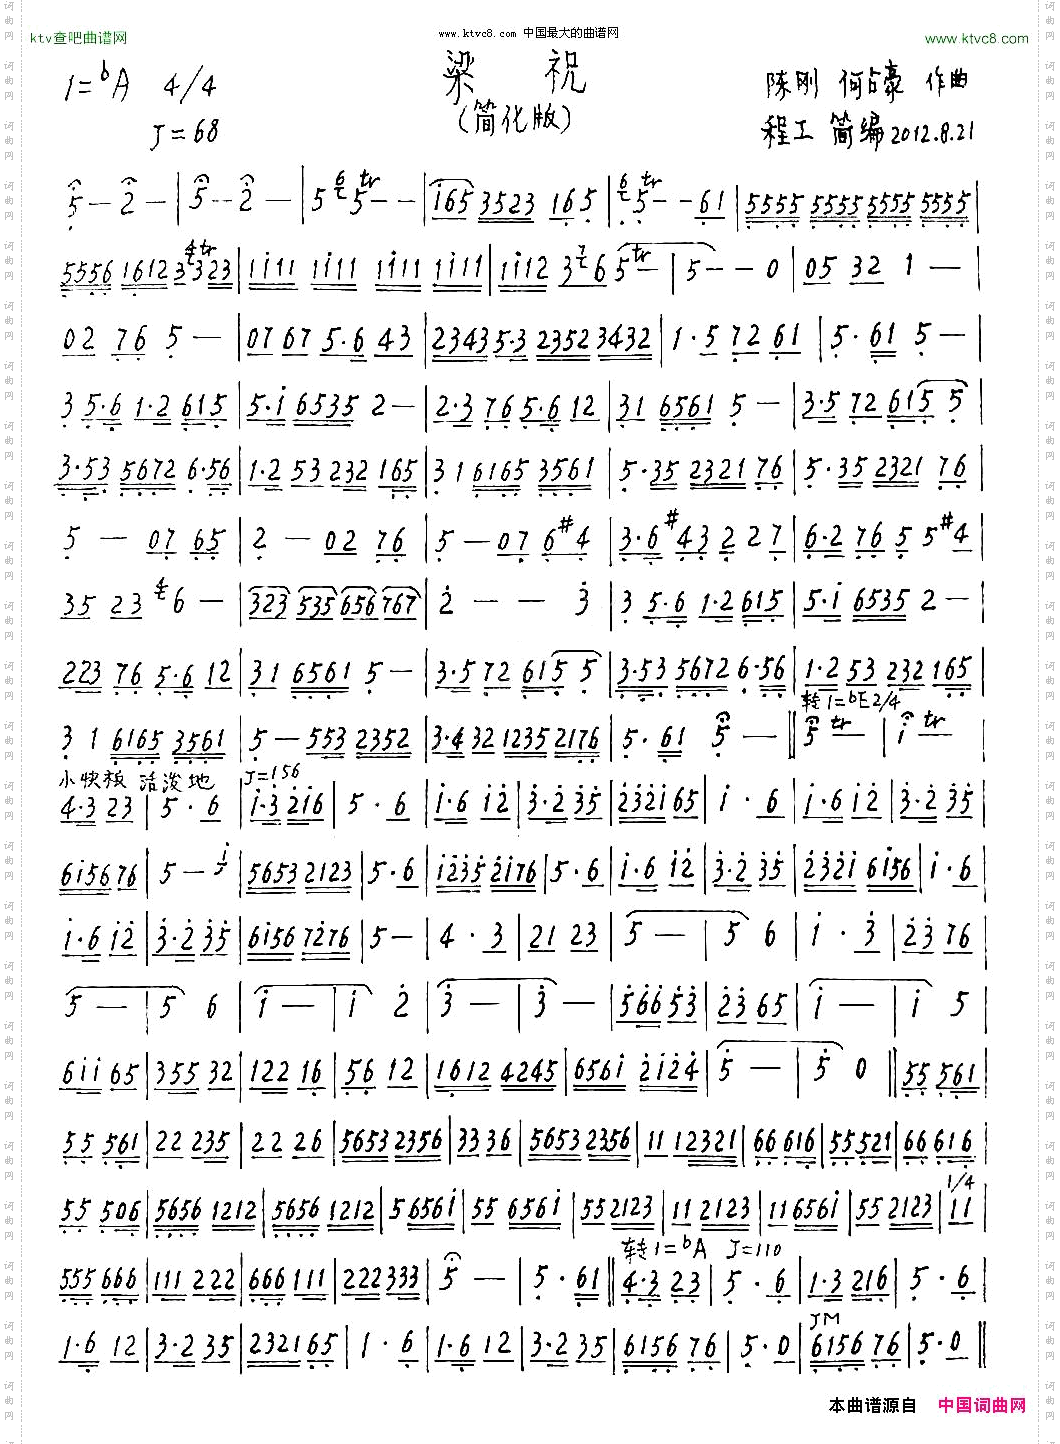 www.ktvc8.com 中国最大的曲谱网
ktv查吧曲谱网
www.ktvc8.com
梁 祝
(简化版)
1=bA 4/4
J=68
陈刚 何占豪 作曲
程工 简编 2012.8.21
5 — 2 — | 5 -- 2 — | 5 6 5 tr - - | i65 3523 165 | 6 5 tr - - 61 | 5555 5555 5555 5555 |
5556 1612 3 4 3 tr 23 | 1i11 1i11 1i11 1i11 | 1i12 3 7 6 5 tr — | 5 - - 0 | 05 32 1 — |
02 76 5 — | 07 67 5·6 43 | 2343 5·3 2352 3432 | 1·5 72 61 | 5·61 5 — |
3 5·6 1·2 615 | 5·i 6535 2 — | 2·3 76 5·6 12 | 31 6561 5 — | 3·5 72 615 5 |
3·53 5672 6·56 | 1·2 53 232 165 | 3 1 6165 3561 | 5·35 2321 76 | 5·35 2321 76 |
5 — 07 65 | 2 — 02 76 | 5 — 07 6#4 | 3·6 #43 2 2 7 | 6·2 76 5 5#4 |
35 23 4 6 — | 323 535 656 767 | 2 — — 3 | 3 5·6 1·2 615 | 5·i 6535 2 — |
223 76 5·6 12 | 31 6561 5 — | 3·5 72 615 5 | 3·53 5672 6·56 | 1·2 53 232 165 |
转1=bE 2/4
3 1 6165 3561 | 5 — 553 2352 | 3·4 32 1235 2176 | 5·61 5 — ‖ 5 tr — | i tr — |
小快板 活泼地 J=156
4·3 23 | 5·6 | i·3 2i6 | 5·6 | i·6 i2 | 3·2 35 | 232i 65 | i·6 | i·6 i2 | 3·2 35 |
6i56 76 | 5 — i 5 | 5653 2123 | 5·6 | i235 2i76 | 5·6 | i·6 i2 | 3·2 35 | 232i 6i56 | i·6 |
i·6 i2 | 3·2 35 | 6i56 7276 | 5 — | 4·3 | 21 23 | 5 — | 5 6 | i·3 | 23 76 |
5 — | 5 6 | i — | i 2 | 3 — | 3 — | 566 53 | 23 65 | i — | i 5 |
6ii 65 | 355 32 | 122 16 | 56 12 | 1612 4245 | 656i 2i24 | 5 — | 5 0 ‖ 55 561 |
55 561 | 22 235 | 22 26 | 5653 2356 | 33 36 | 5653 2356 | 11 12321 | 66 616 | 55 521 | 66 616 |
1/4
55 506 | 5656 1212 | 5656 1212 | 5 6561 | 55 656i | 55 2123 | 11 2123 | 11 656i | 55 2123 | 11 |
转1=bA J=110
555 666 | 111 222 | 666 111 | 222 333 | 5 — | 5·61 ‖ 4·3 23 | 5·6 | 1·3 216 | 5·6 |
JM
1·6 12 | 3·2 35 | 2321 65 | 1·6 | 1·6 12 | 3·2 35 | 6156 76 | 5·0 | 6156 76 | 5·0 ‖
本曲谱源自 中国词曲网